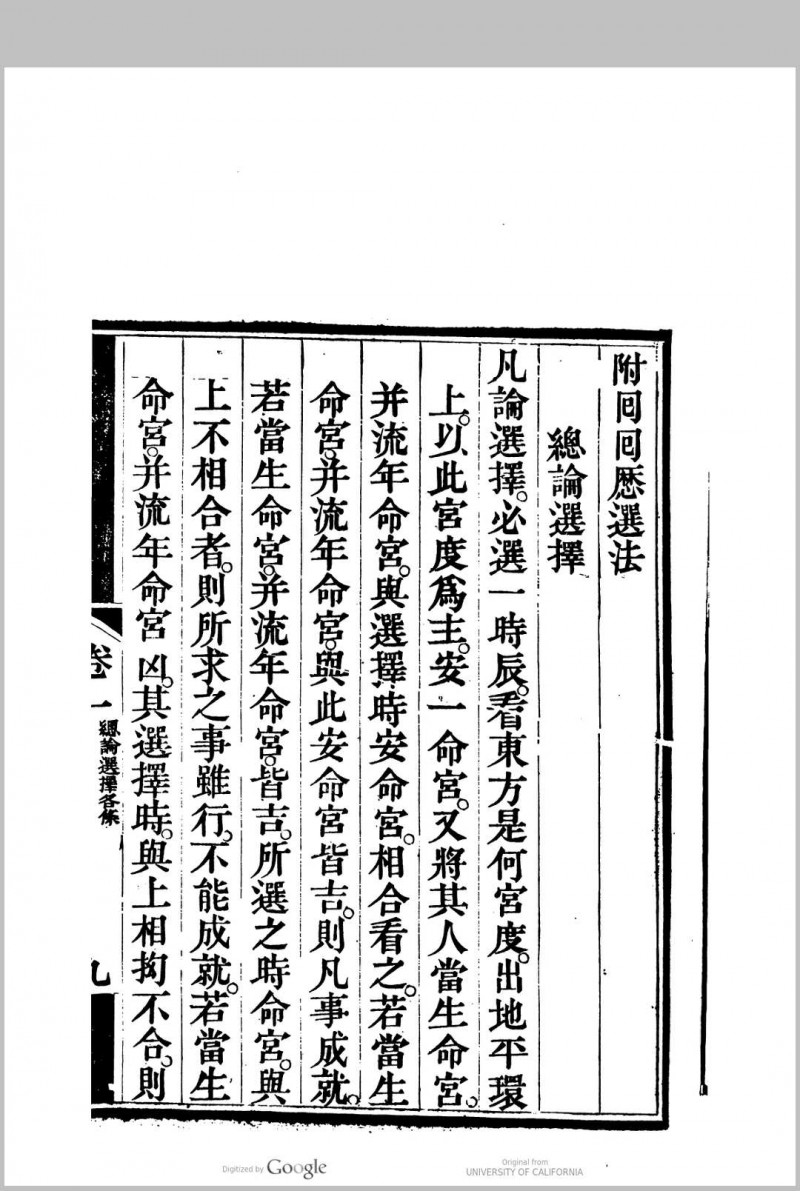 附囘囘厯選法
總論選擇
凡論選擇。必選一時辰。看東方是何宮度。出地平環
上。以此宮度爲主。安一命宮。又將其人當生命宮。
并流年命宮。與選擇時安命宮。相合看之。若當生
命宮。并流年命宮。與此安命宮皆吉。則凡事成就。
若當生命宮。并流年命宮。皆吉。所選之時命宮。與
上不相合者。則所求之事雖行。不能成就。若當生
命宮。并流年命宮凶。其選擇時。與上相拘不合。則
卷一
總論選擇各條
九
Digitized by Google
Original from
UNIVERSITY OF CALIFORNIA